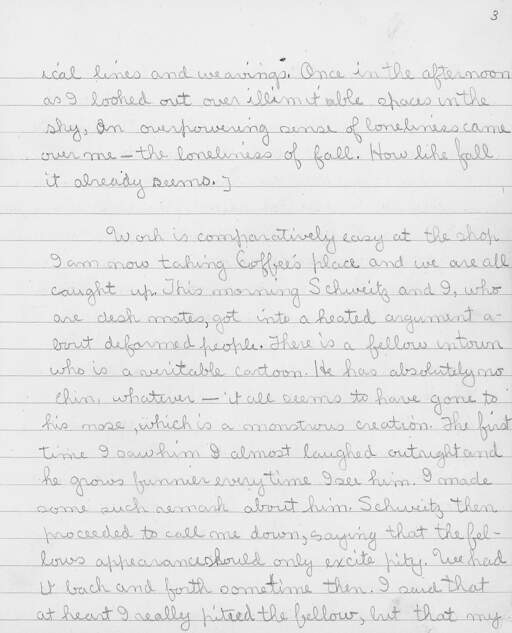 3
ical lines and weavings. Once in the afternoon
as I looked out over illimitable spaces in the
sky, an overpowering sense of loneliness came
over me — the loneliness of fall. How like fall
it already seems. ]
Work is comparatively easy at the shop
I am now taking Coffee's place and we are all
caught up. This morning Schweitz and I, who
are desk mates, got into a heated argument a-
bout deformed people. There is a fellow in town
who is a veritable cartoon. He has absolutely no
chin, whatever — it all seems to have gone to
his nose, which is a monstrous creation. The first
time I saw him I almost laughed outright and
he grows funnier every time I see him. I made
some such remark about him. Schweitz then
proceeded to call me down, saying that the fel-
lows appearance should only excite pity. We had
it back and forth sometime then. I said that
at heart I really pitied the fellow, but that my